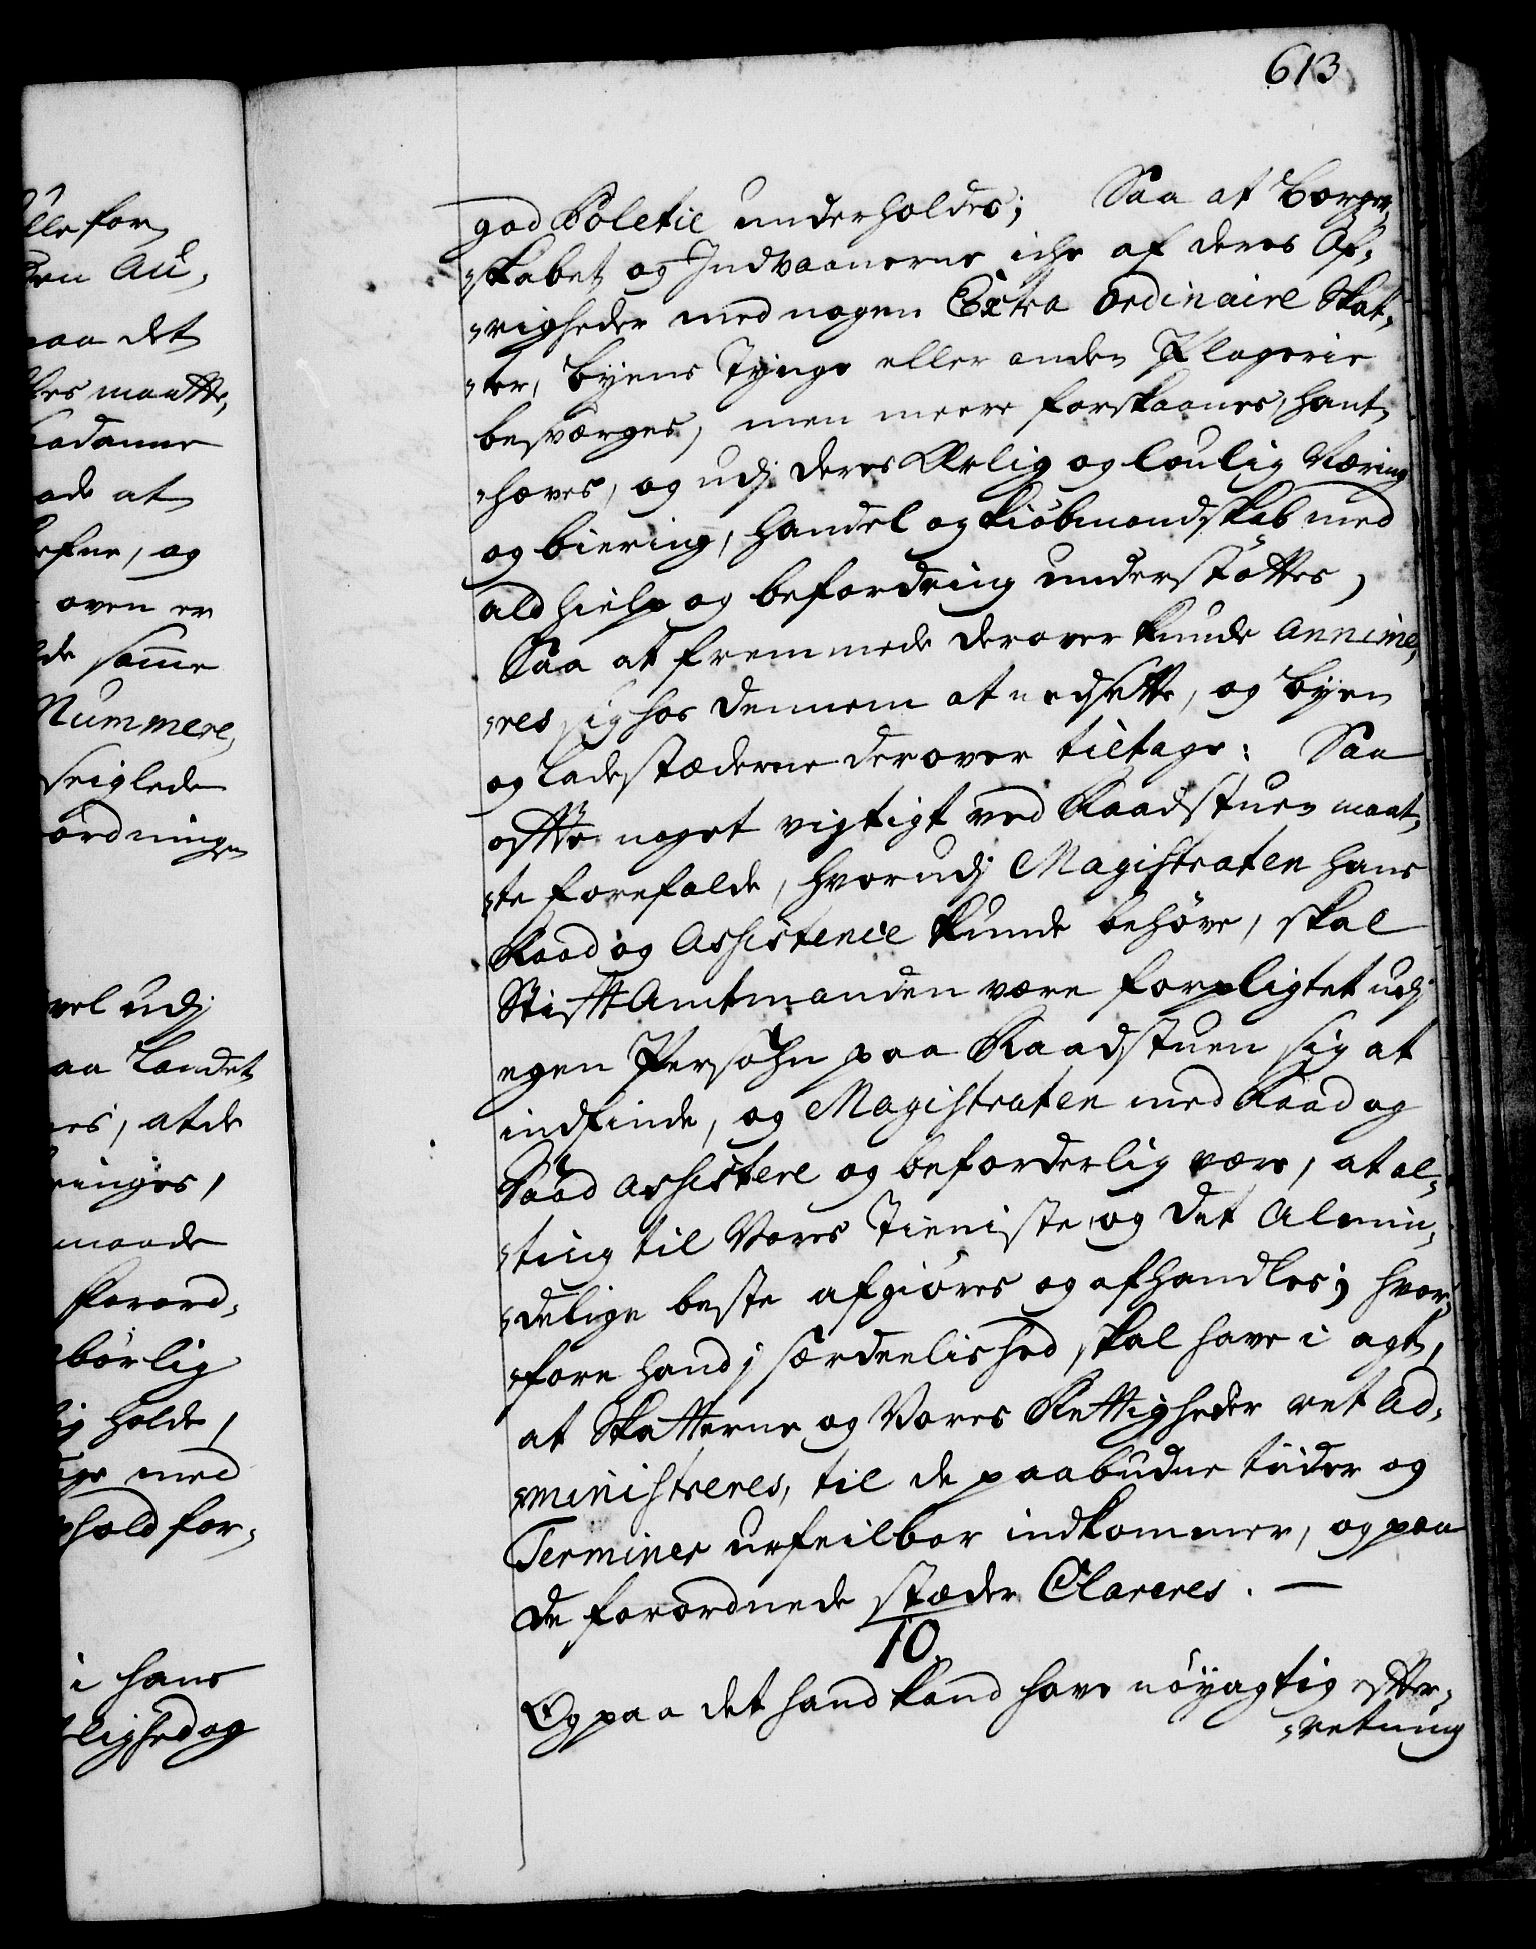 613
god Poletie underholdes; Saa at Borger,
„skabet og Indvaanerne iche af deres Øf,
„righeder med nogen Extra ordinaire Skat,
„ter, Byens Tynge eller anden Plagerie
besværges, men meere forskaanes, hant,
„hæves, og udj deres Ærlig og loulig Næring
og biering, handel og Kiøbmandskab med
ald hielp og befordring understøttes,
Saa at fremmede derover kunde annime,
„res sig hos dennem at nedsætte, og Byen
og Ladestæderne derover tiltage: Saa
offte noget vigtigt ved Raadstuen maat,
„te forefalde, hvorudj Magistraten hans
Raad og Assistence kunde behøve, skal
StifftAmtmanden være forpligtet udj
egen Persohn paa Raadstuen sig at
indfinde, og Magistraten med Raad og
Daad assistere og beforderlig være, at al,
„ting til Vores Tieniste og det Almin,
„delige beste afgiøres og afhandles; hvor,
„fore hand j særdeelished skal have i agt,
at Skatterne og Vores Rettigheder ret Ad,
„ministreres, til de paabudne tiider og
Terminer ufeilbar indkommer, og paa
de forordnede stæder Clareres. —
10
Og paa det hand kand have nøyagtig effter,
„retning
lle for
den Au,
paa det
les maatte,
saadanne
ade at
efne, og
oven er
de samme
Nummere,
seiglede
ordningen
vel udj
aa Landet
es, at de
ringes,
maade
Forord,
børlig
ig holde,
ige med
hold for,
i hans
lighed og